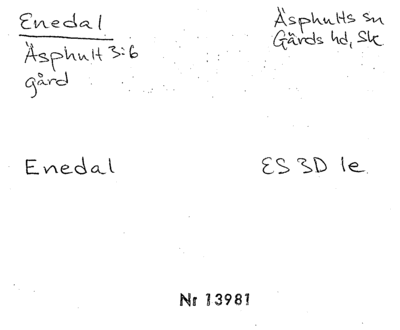 Enedal
Äsphults sn
Gärds hd, Sk
Äsphult 3:6
gård
Enedal
ES 3D 1e
Nr 13981